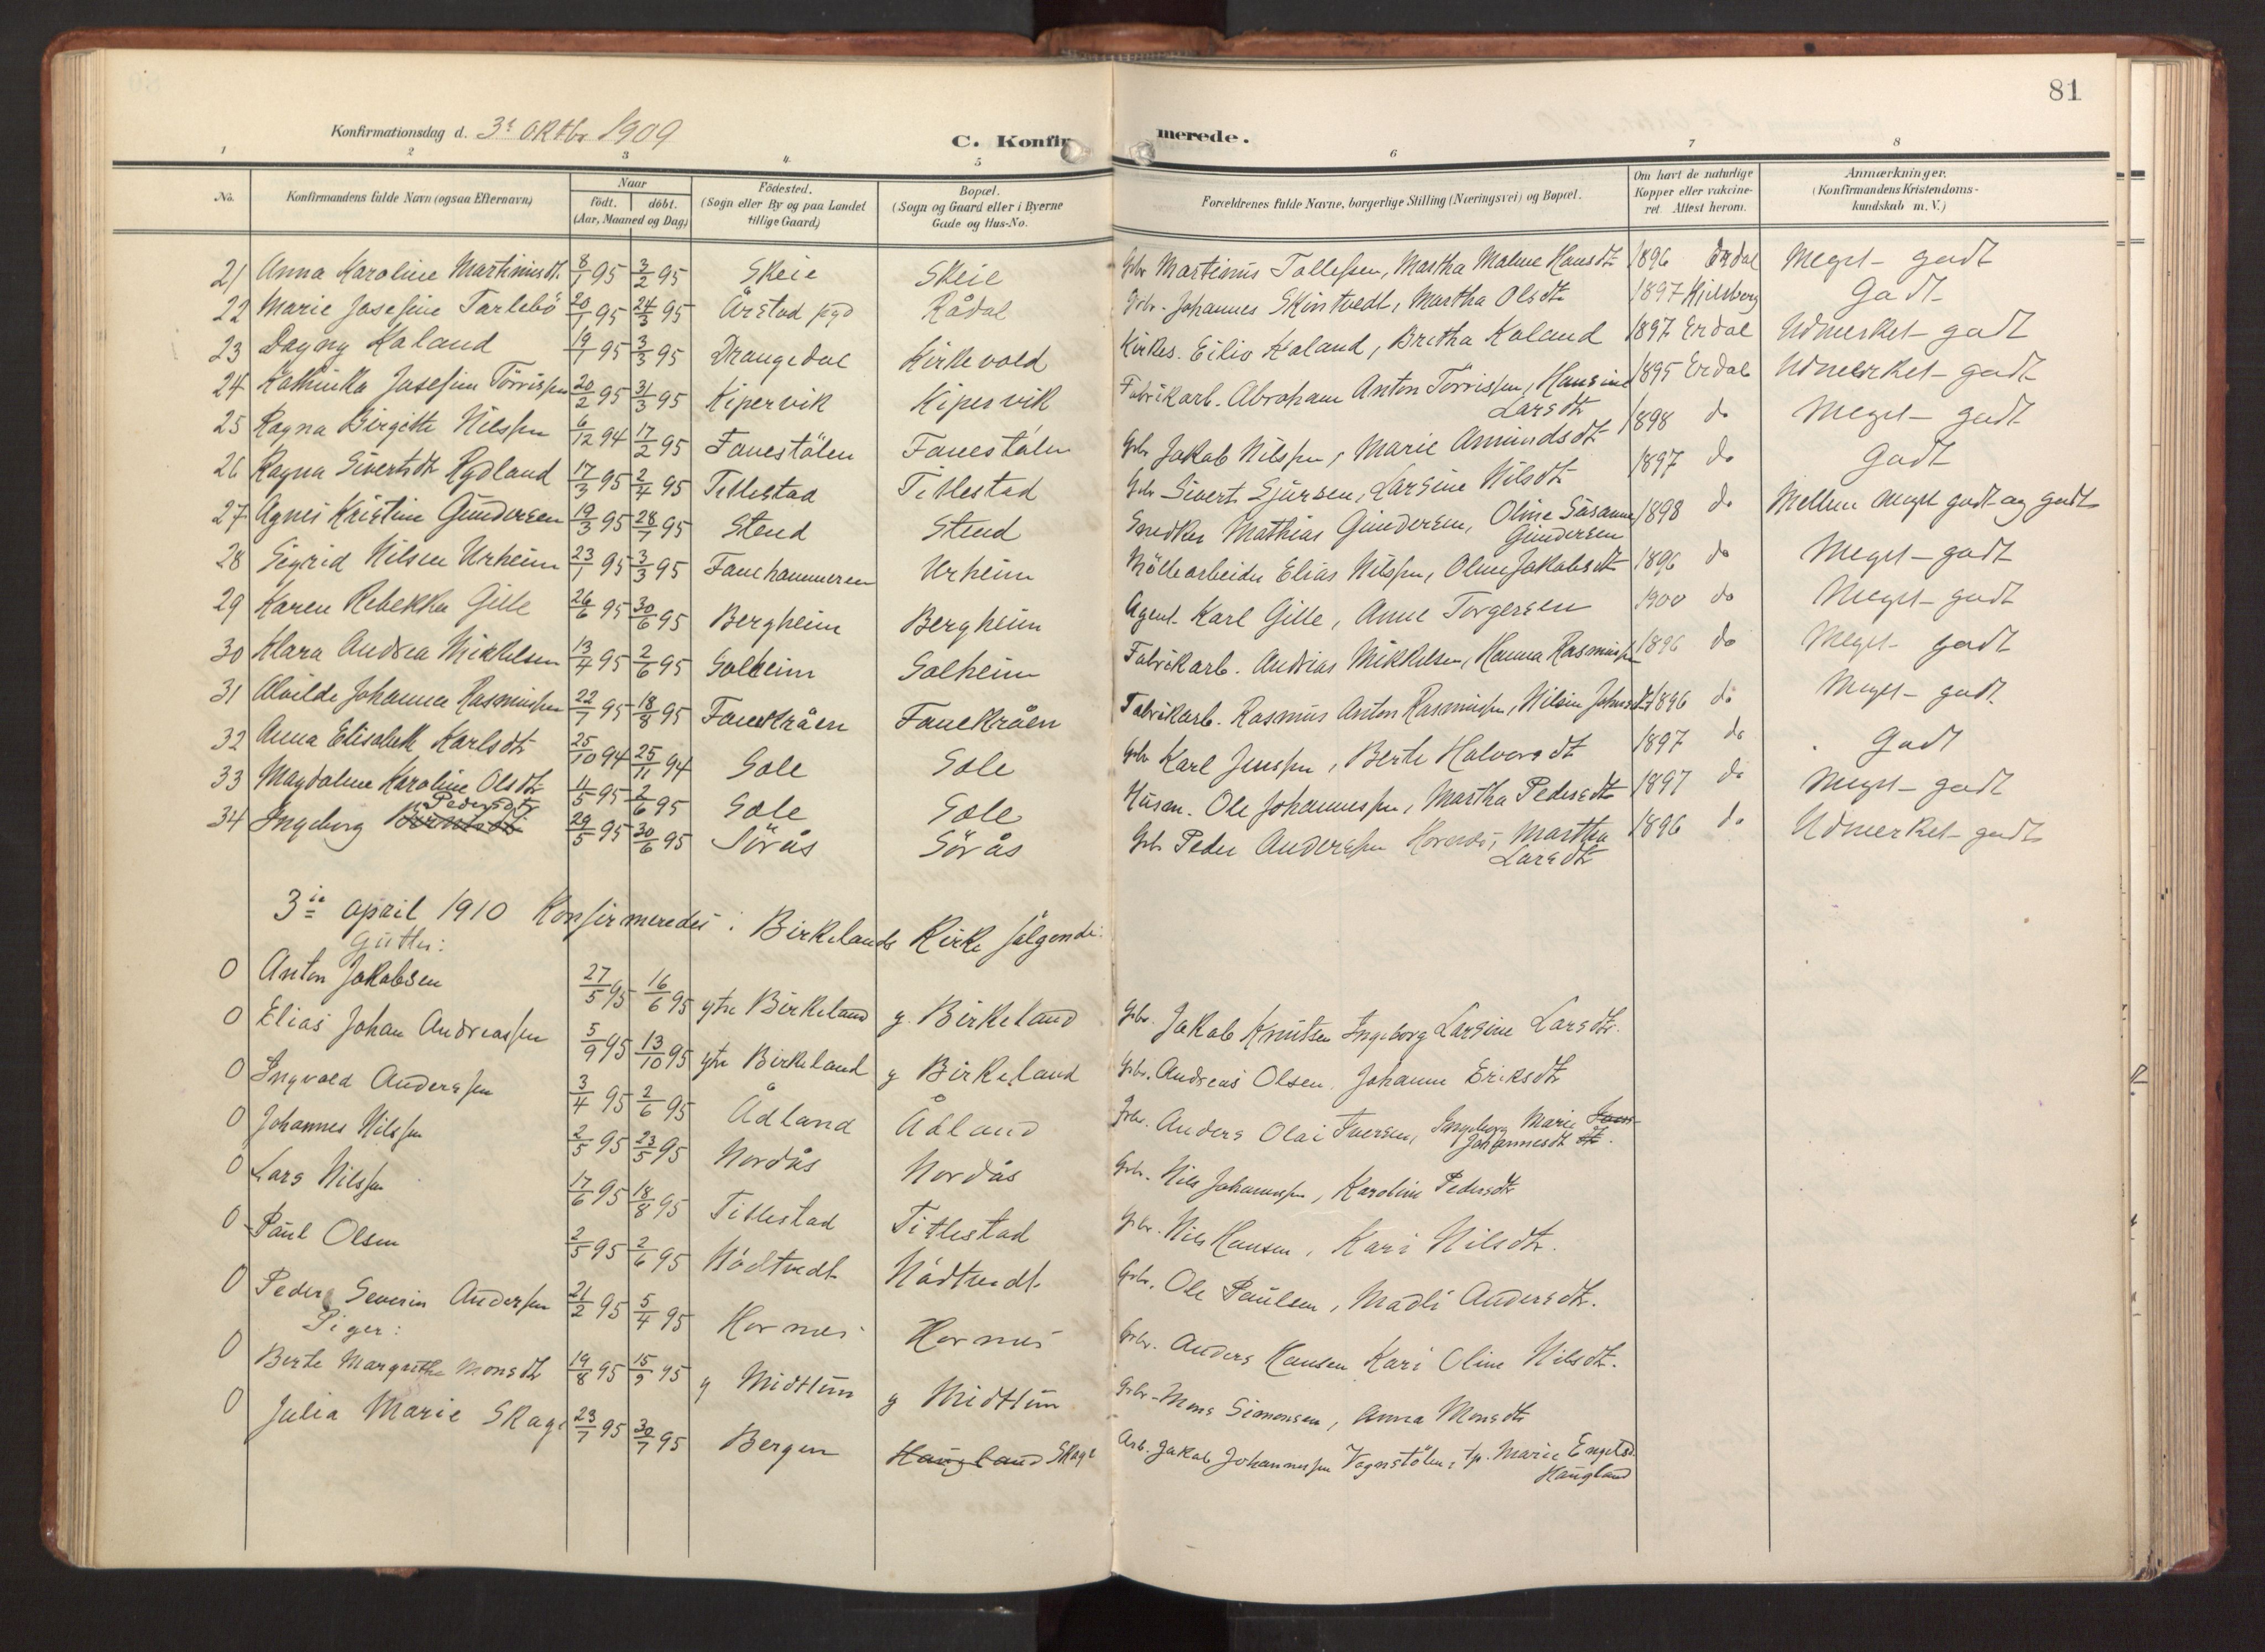 81
Konfirmationsdag d. 3 Oktbr 1909
C. Konfirmerede.
1 2 3 4. 5 6 7 8
No. Konfirmandens fulde Navn (ogsaa Efternavn) Naar födt. döbt. (Aar, Maaned og Dag) Födested. (Sogn eller By og paa Landet tillige Gaard) Bopæl. (Sogn og Gaard eller i Byerne Gade og Hus-No. Forældrenes fulde Navne, borgerlige Stilling (Næringsvei) og Bopæl. Om havt de naturlige Kopper eller vakcineret. Attest herom. Anmærkninger. (Konfirmandens Kristendomskundskab m. V.)
21 Anna Karoline Martinusdt. 8/1 95 3/2 95 Skeie Skeie Gbr Martinus Tollefsen, Martha Malene Hansdt 1896 Erdal Meget godt
22 Marie Josefine Tarlebö 20/1 95 24/3 95 Årstad pgd Rådal Gbr. Johannes Skintvedt, Martha Olsdt 1897 Godt
23 Dagny Kaland 19/1 95 3/3 95 Drangedal Kirkevold Kirkes. Eiliv Kaland, Britha Kaland 1897 Erdal Udmerket godt
24 Kathinka Josefine Törrissen 20/2 95 31/3 95 Kipervik Kipervik Fabrikarb. Abraham Anton Törrissen, Hansine Larsdt 1895 Erdal Udmerket godt
25 Ragna Birgitte Nilssen 6/12 94 17/2 95 Fanestölen Fanestölen Gbr Jakob Nilssen, Marie Amundsdt 1898 do Meget godt
26 Ragna Sivertsdt Rydland 17/3 95 2/4 95 Titlestad Titlestad Gbr Sivert Sjursen, Larsine Nilsdt 1897 do Godt
27 Agnes Kristine Gundersen 19/3 95 28/7 95 Stend Stend Snedker Mathias Gundersen, Oline Susanne Gundersen 1898 do Mellem meget godt og godt
28 Sigrid Nilsen Urheim 23/1 95 3/3 95 Fanehammeren Urheim Möllearbeider Elias Nilssen, Oline Jakobsdt 1896 do Meget godt
29 Karen Rebekka Gille 26/6 95 30/6 95 Bergheim Bergheim Agent Karl Gille, Anne Torgersen 1900 do Meget godt
30 Klara Andrea Mikkelsen 13/4 95 2/6 95 Solheim Solheim Fabrikarb. Andrias Mikkelsen, Hanna Rasmussen 1896 do Meget godt
31 Alvilde Johanna Rasmussen 22/7 95 18/8 95 Fanekråen Fanekråen Fabrikarb. Rasmus Anton Rasmussen, Nilsine Johnsdt 1896 do Meget godt
32 Anna Elisabeth Karlsdt 25/10 94 25/11 94 Sole Sole Gbr Karl Jenssen, Berte Halvorsdt 1897 do Godt
33 Magdalene Karoline Olsdt 11/5 95 2/6 95 Sole Sole Husm. Ole Johannessen, Martha Pedersdt 1897 do Meget godt
34 Ingeborg Pedersdt 29/5 95 30/6 95 Sörås Sörås Gbr Peder Anderssen, Martha Larsdt 1896 do Udmerket godt
3die april 1910 Konfirmeredes i Birkelands Kirke fölgende:
Gutter:
0 Anton Jakobsen 27/5 95 16/6 95 ytre Birkeland y. Birkeland Gbr. Jakob Knutsen Ingeborg Larsine Larsdt.
0 Elias Johan Andreassen 5/9 95 13/10 95 ytre Birkeland y Birkeland Gbr. Andreas Olsen, Johanne Eriksdt
0 Ingvald Anderssen 3/4 95 2/6 95 Ådland Ådland Gbr. Anders Olai Iversen, Ingeborg Marie Johannesdt
0 Johannes Nilssen 2/5 95 23/5 95 Nordås Nordås Gbr. Nils Johannessen, Karoline Pedersdt
0 Lars Nilssen 17/6 95 18/8 95 Titlestad Titlestad Gbr. Nils Hansen, Kari Nilsdt.
0 Paul Olsen 2/5 95 2/6 95 Nödtvedt Nödtvedt Gbr. Ole Paulsen, Madli Andersdt.
0 Peder Severin Anderssen 21/2 95 5/4 95 Hornes Hornes Gbr. Anders Hansen Kari Oline Nilsdt.
Piger:
0 Berte Margrethe Monsdt 19/8 95 15/9 95 y Midttun y Midttun Gbr. Mons Simonsen, Anna Monsdt
0 Julia Marie Skage 23/7 95 30/7 95 Bergen Haugland Skage Arb. Jakob Johannessen Vognstölen, tp. Marie Engelsd. Haugland